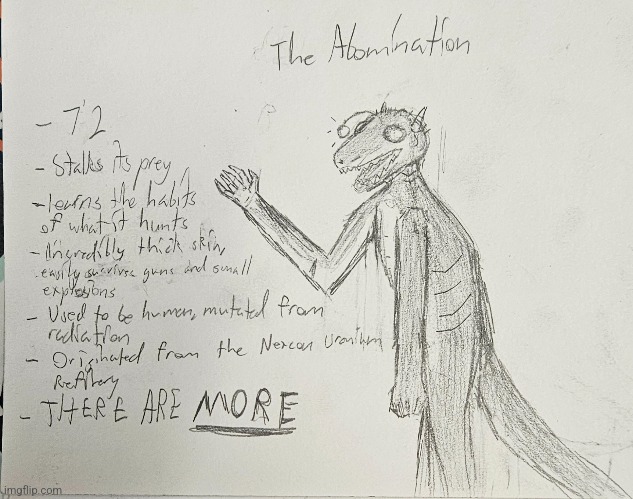 The Abomination
- 7'2
- Stalks its prey
- learns the habits
of what it hunts
- Incredibly thick skin,
easily survives guns and small
explosions
- Used to be human, mutated from
radiation
- Originated from the Nexcon Uranium
Refinery
- THERE ARE MORE
imgflip.com